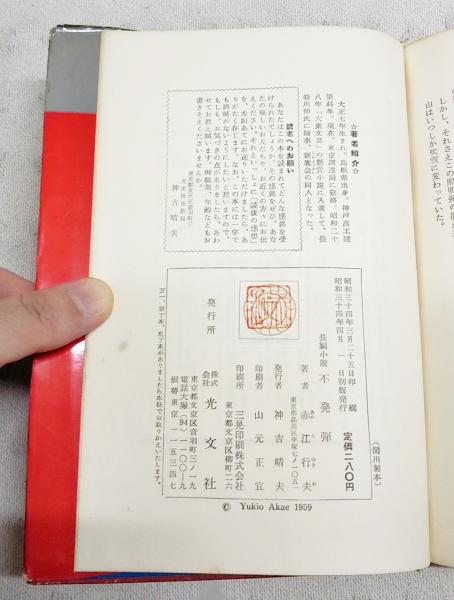 ☆著者紹介☆
大正七年生まれ。島根県出身。神戸高工建
築科卒。現在、東京調達局に勤務。昭和二十
八年「大衆文芸」の懸賞小説に入選して、長
谷川伸氏に師事、新鷹会の同人となった。
読者へのお願い
あなたはこの本を読まれてどんな感銘を受
けられたでしょうか。その感銘をぜひ、あな
たの親しいお友だちや、お近くの方々にお伝
えください。そして、「読後の感想」
を、左記あてにお送りいただけましたら、あ
りがたく存じます。なお、この本には一字で
も誤植がないようにしたいと思いますので、
もしも、お気づきの点がありましたら、あわ
せてお教え願います。御職業、年齢などもお
書きそえくださいませんか。
東京都文京区音羽町三ノ一九
光文社出版局
神吉晴夫
昭和三十四年三月二十五日印刷
昭和三十四年四月一日初版発行
長編小説 不発弾
定価二八〇円
著者 赤江行夫
東京都品川区平塚七ノ一〇五一
発行者 神吉晴夫
印刷者 山元正宜
印刷所 三晃印刷株式会社
東京都文京区柳町二六
発行所
株式会社 光文社
東京都文京区音羽町三ノ一九
電話大塚(94)一一〇〇〜九
振替東京一一五三四七
〈関川製本〉
万一、落丁本、乱丁本がありましたら本社でお取りかえいたします。
© Yukio Akae 1959
山はいつしか吹雪に変わっていた。